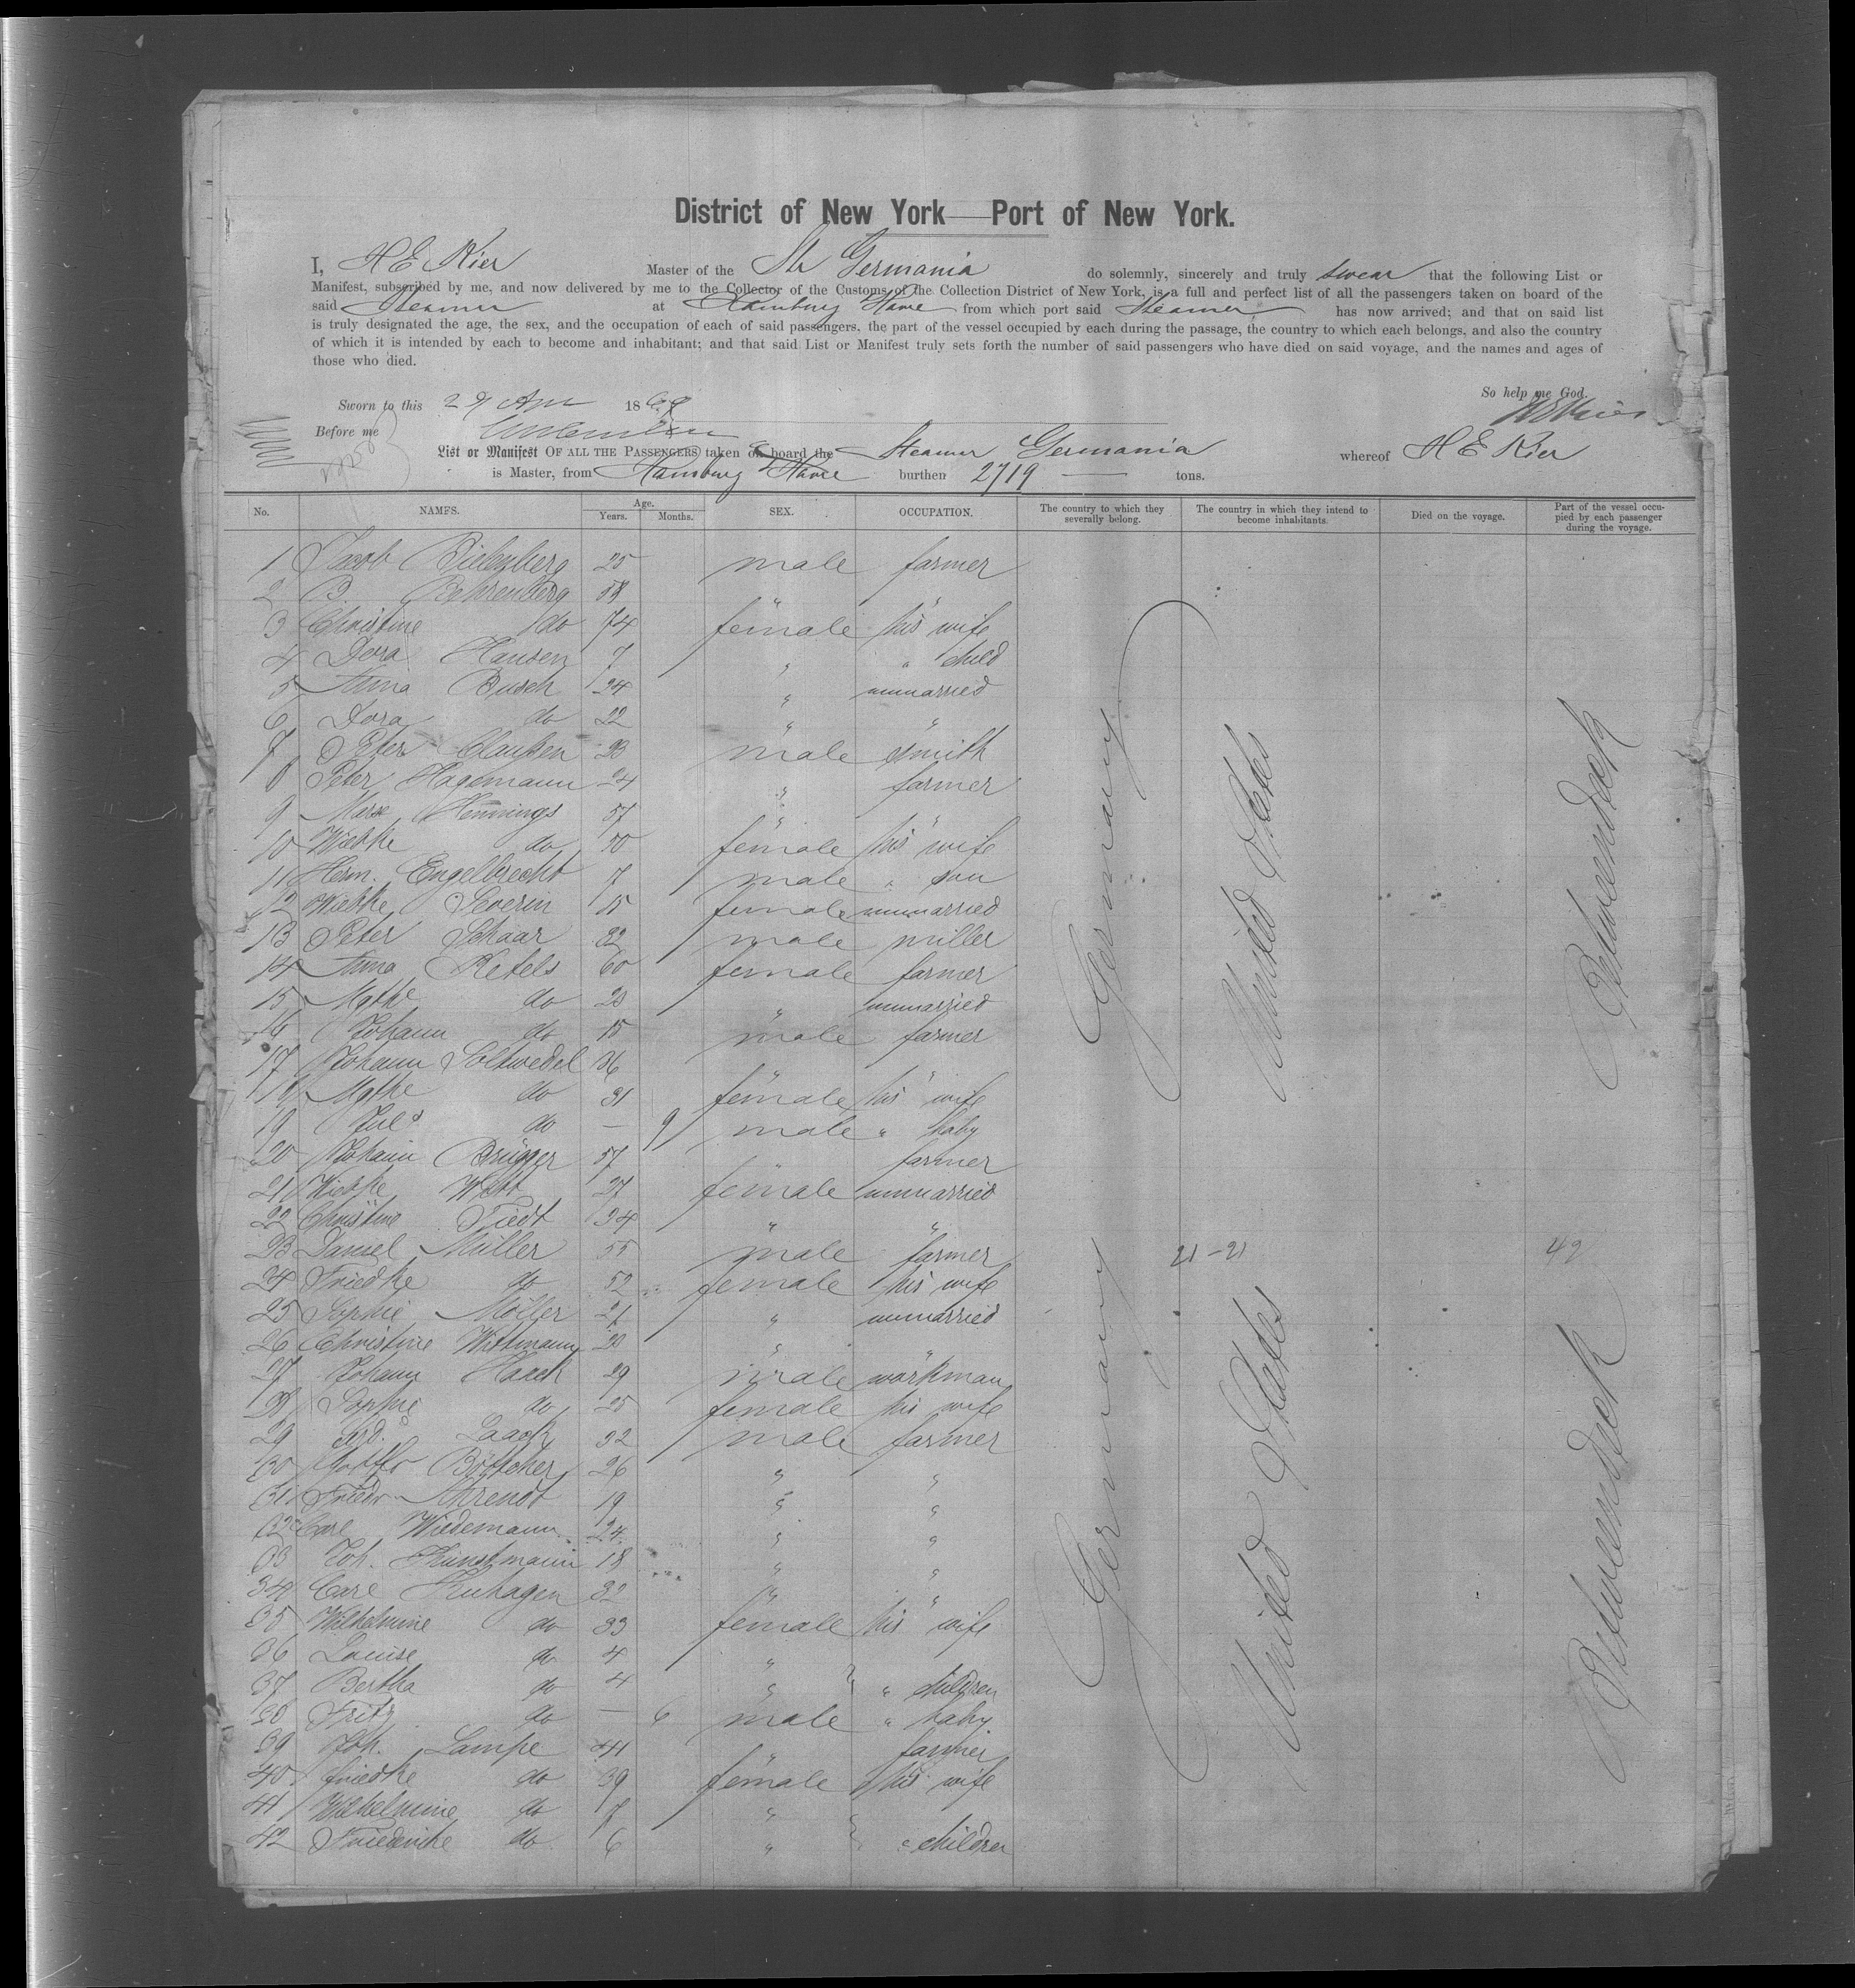 District of New York—Port of New York.
I, H E Kier Master of the Str Germania do solemnly, sincerely and truly swear that the following List or
Manifest, subscribed by me, and now delivered by me to the Collector of the Customs of the Collection District of New York, is a full and perfect list of all the passengers taken on board of the
said Steamer at Hamburg Havre from which port said Steamer has now arrived; and that on said list
is truly designated the age, the sex, and the occupation of each of said passengers, the part of the vessel occupied by each during the passage, the country to which each belongs, and also the country
of which it is intended by each to become and inhabitant; and that said List or Manifest truly sets forth the number of said passengers who have died on said voyage, and the names and ages of
those who died.
So help me God.
Sworn to this 29 Apr 1869
H E Kier
Before me
List or Manifest OF ALL THE PASSENGERS taken on board the Steamer Germania whereof H E Kier
is Master, from Hamburg & Havre burthen 2719 — tons.
No. NAMES. Age. Years. Months. SEX. OCCUPATION. The country to which they severally belong. The country in which they intend to become inhabitants. Died on the voyage. Part of the vessel occupied by each passenger during the voyage.
1 Jacob 25 male farmer
2 B. Behrenberg 58 " "
3 Christine do 74 female his wife
4 Dora Hansen 7 " " child
5 Anna Busch 24 " unmarried
6 Dora do 22 " "
7 Peter Claußen 23 male smith
8 Peter Hagemann 24 " farmer
9 Marx Hennings 57 " "
10 Wiebke do 50 female his wife
11 Herm. Engelbrecht 7 male " son
12 Wiebke Severin 15 female unmarried
13 Peter Schaar 32 male miller
14 Anna Ketels 60 female farmer
15 Mgthe do 23 " unmarried
16 Johann do 15 male farmer
17 Johann Soltwedel 36 " "
18 Mgthe do 31 female his wife
19 Juls do — 9 male " baby
20 Johann Brügger 57 farmer
21 Wiebke Witt 27 female unmarried
22 Christine Tiedt 34 " "
23 Daniel Müller 55 male farmer
24 Friedke do 52 female his wife
25 Sophie Möller 21 " unmarried
26 Christine Wittmann 20 " "
27 Johann Haack 29 male workman
28 Sophie do 25 female his wife
29 Laack 32 male farmer
30 Böttcher 26 " "
31 Friedr. Ahrendt 19 " "
32 Carl Wiedemann 24 " "
33 Joh. Kunstmann 18 " "
34 Carl Kuhagen 32 " "
35 Wilhelmine do 33 female his wife
36 Louise do 4 "
37 Bertha do 4 " } " children
38 Fritz do — 6 male " baby
39 Joh. Lampe 41 " farmer
40 Friedke do 39 female his wife
41 Wilhelmine do 8 "
42 Friedericke do 6 " } " children
Germany
United States
Betweendeck
21-21
42
Germany
United States
Betweendeck